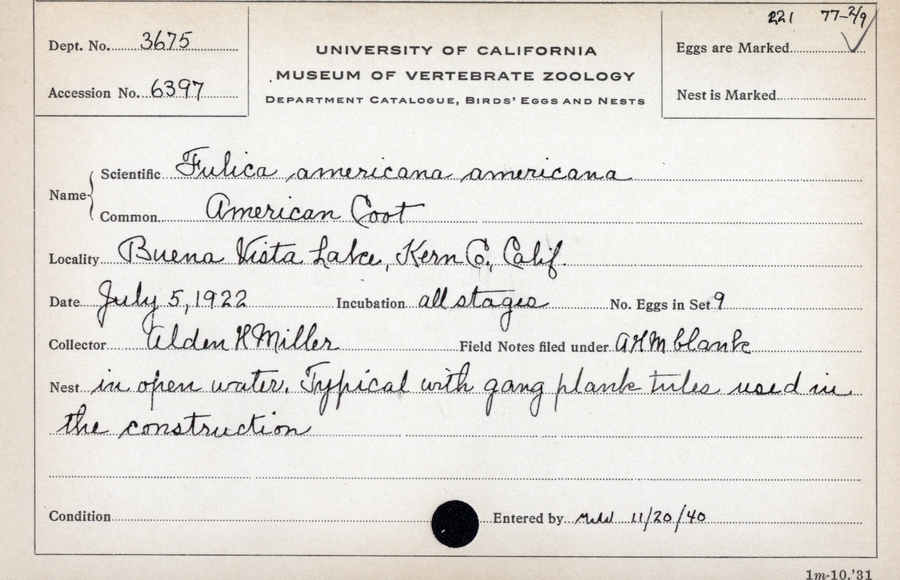 221 77-2/9
Dept. No. 3675
UNIVERSITY OF CALIFORNIA
Eggs are Marked ✓
MUSEUM OF VERTEBRATE ZOOLOGY
Accession No. 6397
DEPARTMENT CATALOGUE, BIRDS' EGGS AND NESTS
Nest is Marked
Name { Scientific Fulica americana americana
Common American Coot
Locality Buena Vista Lake, Kern Co., Calif.
Date July 5, 1922 Incubation all stages No. Eggs in Set 9
Collector Alden H Miller Field Notes filed under AHM blank
Nest in open water. Typical with gang plank tules used in
the construction
Condition Entered by 11/20/40
1m-10,'31